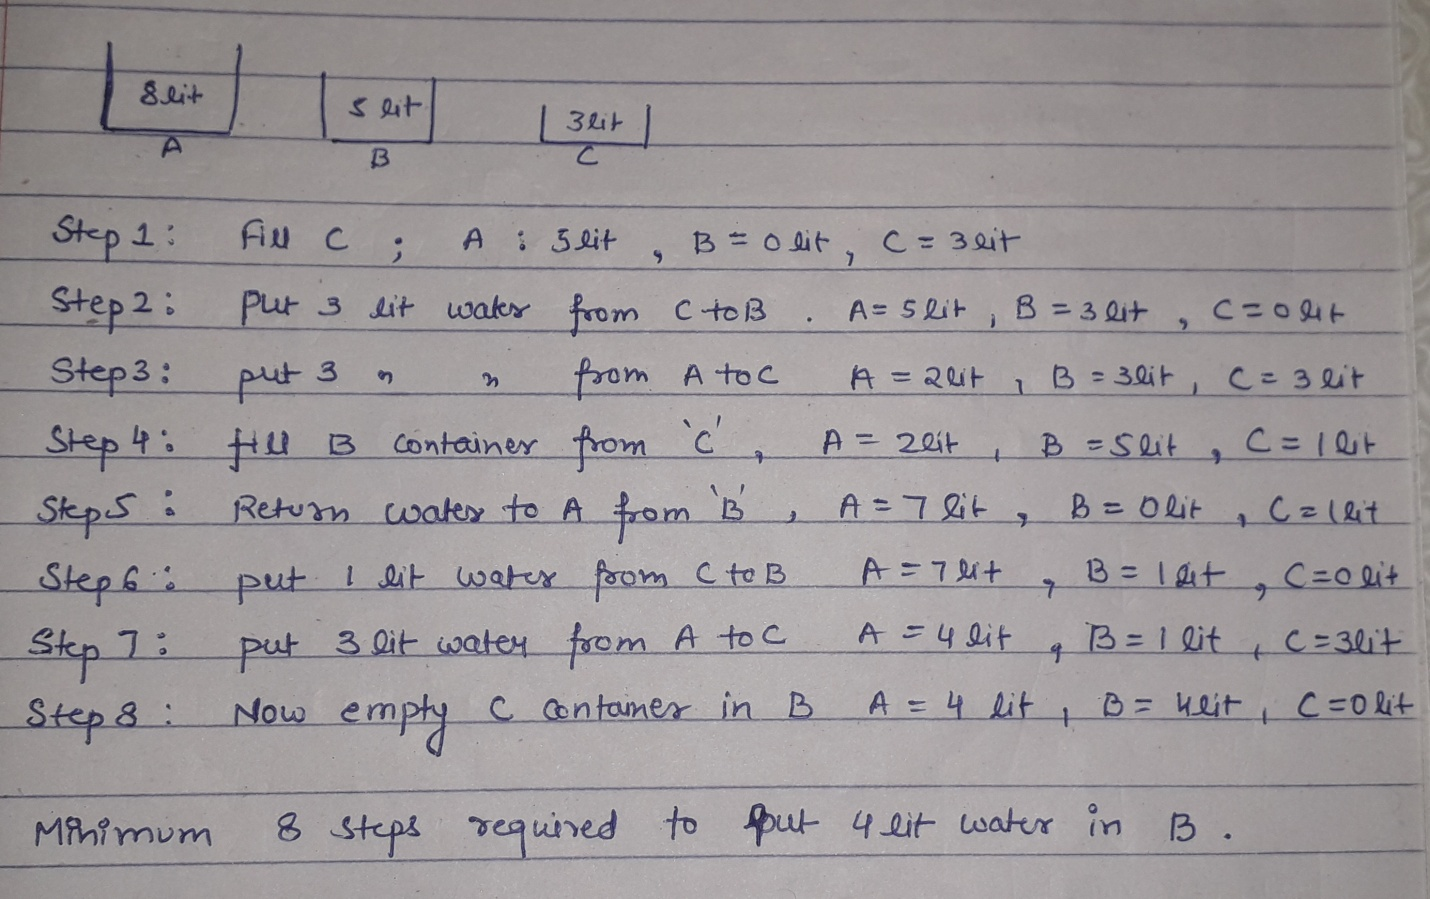 8 lit 5 lit 3 lit
A B C
Step 1: Fill C ; A : 5 lit , B = 0 lit , C = 3 lit
Step 2: Put 3 lit water from C to B . A = 5 lit , B = 3 lit , C = 0 lit
Step 3: put 3 " " from A to C A = 2 lit , B = 3 lit , C = 3 lit
Step 4: fill B container from 'C' , A = 2 lit , B = 5 lit , C = 1 lit
Step 5: Return water to A from 'B' , A = 7 lit , B = 0 lit , C = 1 lit
Step 6: put 1 lit water from C to B A = 7 lit , B = 1 lit , C = 0 lit
Step 7: put 3 lit water from A to C A = 4 lit , B = 1 lit , C = 3 lit
Step 8: Now empty C container in B A = 4 lit , B = 4 lit , C = 0 lit
Minimum 8 steps required to put 4 lit water in B .